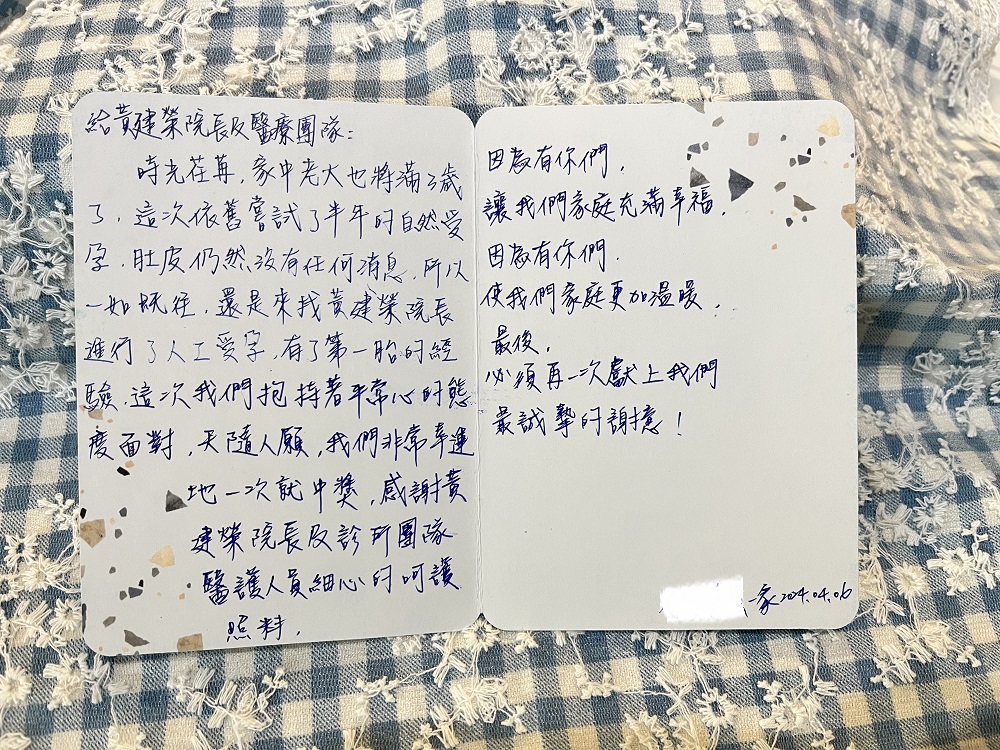 給黃建榮院長及醫療團隊：
時光荏苒，家中老大也將滿3歲
了，這次依舊嘗試了半年的自然受
孕，肚皮仍然沒有任何消息，所以
一如既往，還是來找黃建榮院長
進行了人工受孕，有了第一胎的經
驗，這次我們抱持著平常心的態
度面對，天隨人願，我們非常幸運
地一次就中獎，感謝黃
建榮院長及診所團隊
醫護人員細心的呵護
照料，
因為有你們，
讓我們家庭充滿幸福，
因為有你們，
使我們家庭更加溫暖，
最後，
必須再一次獻上我們
最誠摯的謝意！
一家2024.04.06